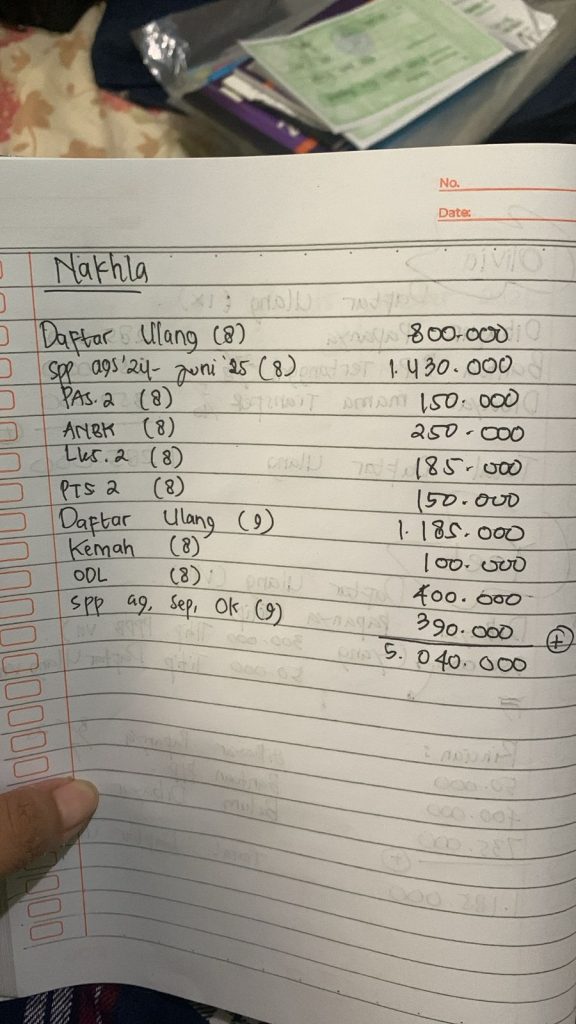 No.
Date:
Nakhla
Daftar Ulang (8) 800.000
Spp ags'24- Juni '25 (8) 1.430.000
PAS.2 (8) 150.000
ANBK (8) 250.000
Lks.2 (8) 185.000
PTS 2 (8) 150.000
Daftar Ulang (9) 1.185.000
Kemah (8) 100.000
ODL (8) 400.000
Spp ag, Sep, Ok (9) 390.000
+
5.040.000